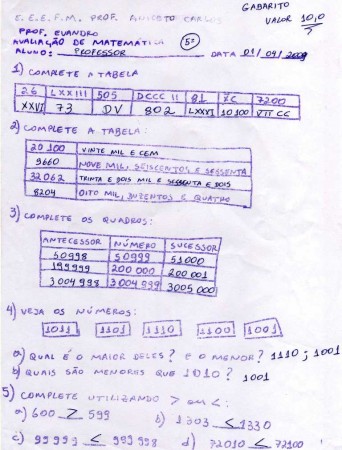 GABARITO
E.E.E.F.M. PROF. ANICETO CARLOS
VALOR 10,0
PROF. EVANDRO
AVALIAÇÃO DE MATEMÁTICA (5ª)
ALUNO: PROFESSOR DATA 01/09/2009
1) COMPLETE A TABELA
26 LXXIII 505 DCCCII 81 7200
XXVI 73 DV 802 LXXXI 10100 VII CC
2) COMPLETE A TABELA:
20 100 VINTE MIL E CEM
9660 NOVE MIL, SEISCENTOS E SESSENTA
32 062 TRINTA E DOIS MIL E SESSENTA E DOIS
8204 OITO MIL, DUZENTOS E QUATRO
3) COMPLETE OS QUADROS:
ANTECESSOR NÚMERO SUCESSOR
50998 50999 51000
199999 200 000 200 001
3004 998 3004 999 3005 000
4) VEJA OS NÚMEROS:
1011 1101 1110 1100 1001
a) QUAL É O MAIOR DELES? E O MENOR? 1110 ; 1001
b) QUAIS SÃO MENORES QUE 1010? 1001
5) COMPLETE UTILIZANDO > OU <:
a) 600 > 599 b) 1303 < 1330
c) 99999 < 999998 d) 72010 < 72100